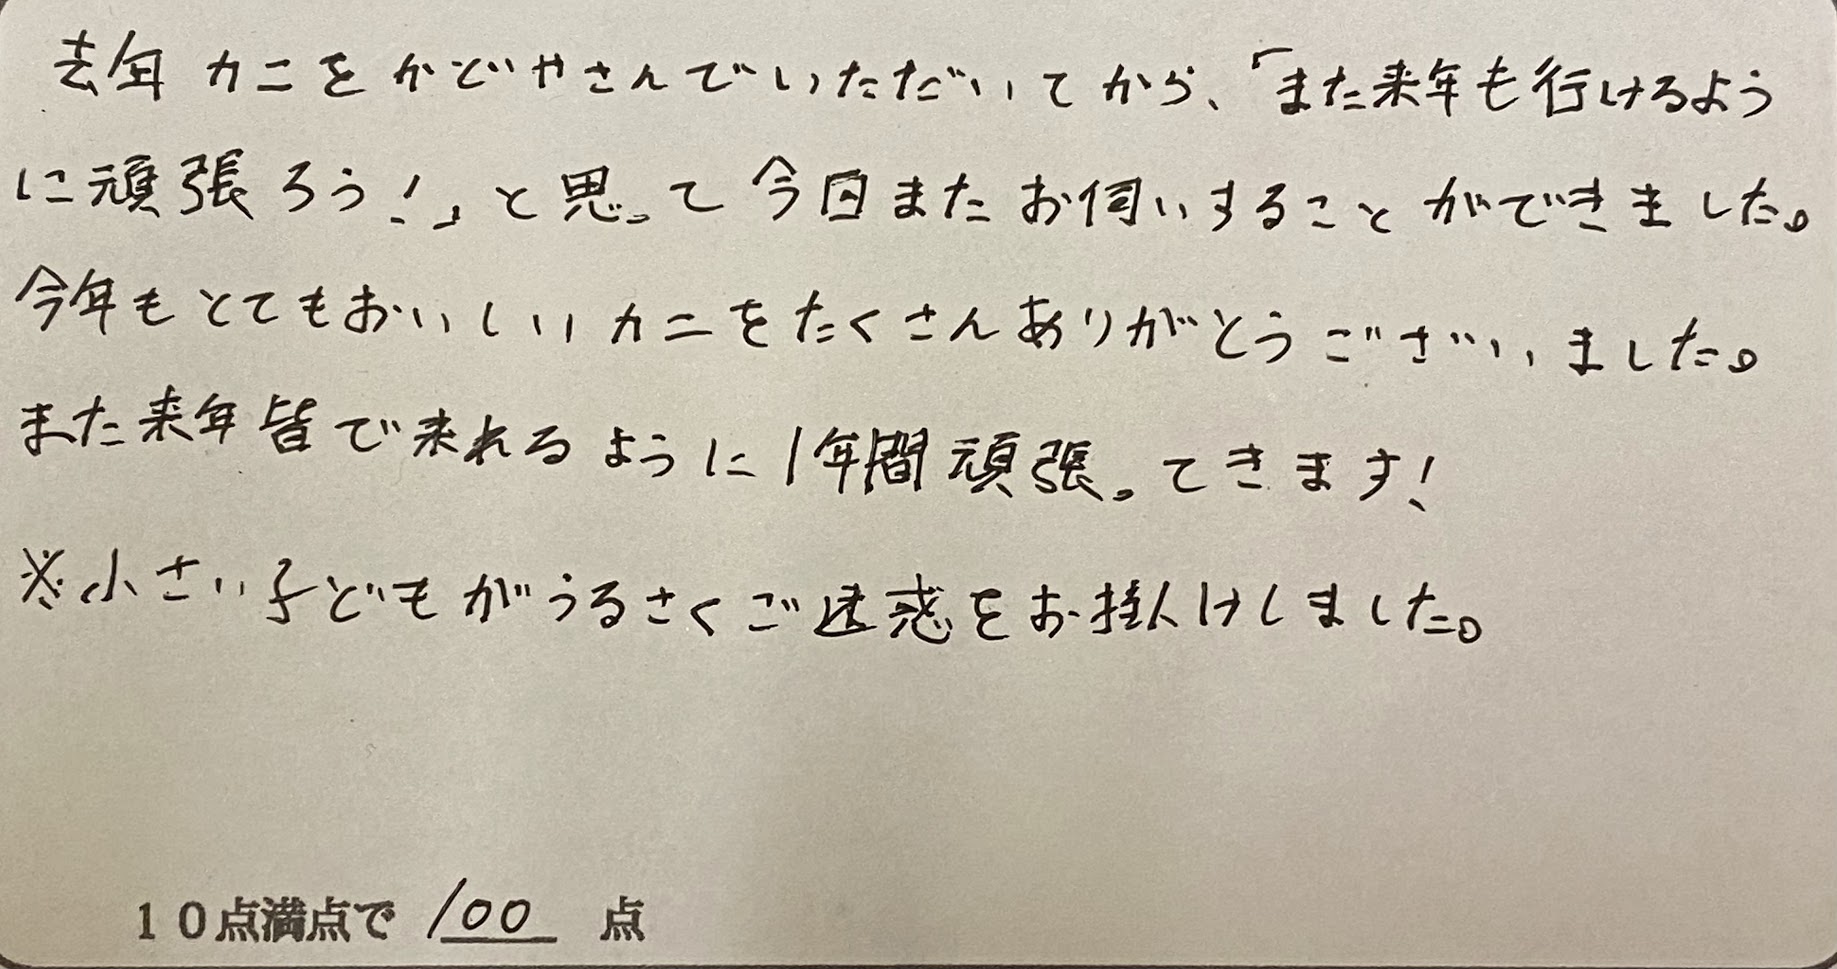 去年カニをかどやさんでいただいてから、「また来年も行けるよう
に頑張ろう！」と思って今回またお伺いすることができました。
今年もとてもおいしいカニをたくさんありがとうございました。
また来年皆で来れるように1年間頑張ってきます！
※小さい子どもがうるさくご迷惑をお掛けしました。
10点満点で 100 点